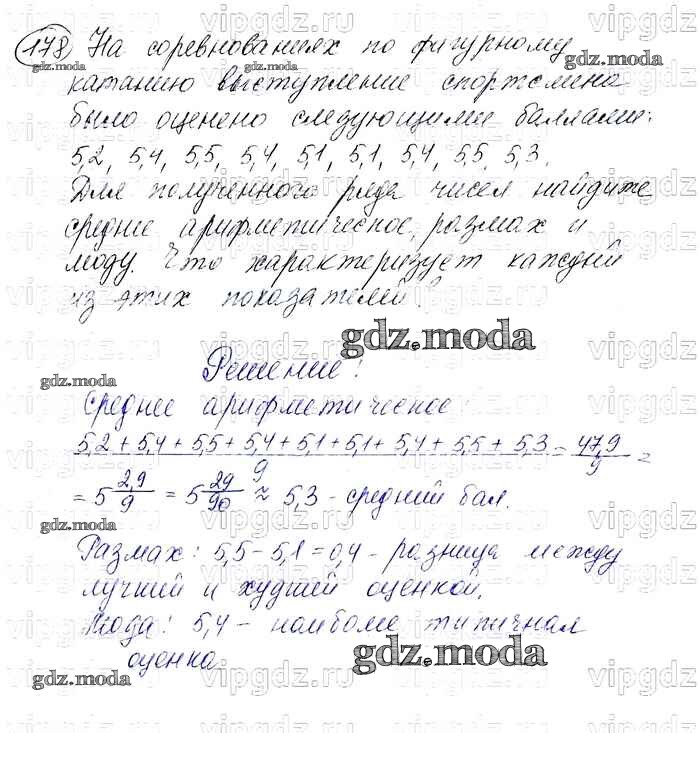 178 На соревнованиях по фигурному
катанию выступление спортсмена
было оценено следующими баллами:
5,2, 5,4, 5,5, 5,4, 5,1, 5,1, 5,4, 5,5, 5,3.
Для полученного ряда чисел найдите
среднее арифметическое, размах и
моду. Что характеризует каждый
из этих показателей?
gdz.moda
Решение:
gdz.moda
Среднее арифметическое:
5,2 + 5,4 + 5,5 + 5,4 + 5,1 + 5,1 + 5,4 + 5,5 + 5,3 / 9 = 47,9 / 9 =
= 5 2,9/9 = 5 29/90 ≈ 5,3 - средний бал.
gdz.moda
Размах: 5,5 - 5,1 = 0,4 - разница между
лучшей и худшей оценкой.
Мода: 5,4 - наиболее типичная
оценка
gdz.moda
gdz.moda
vipgdz.ru